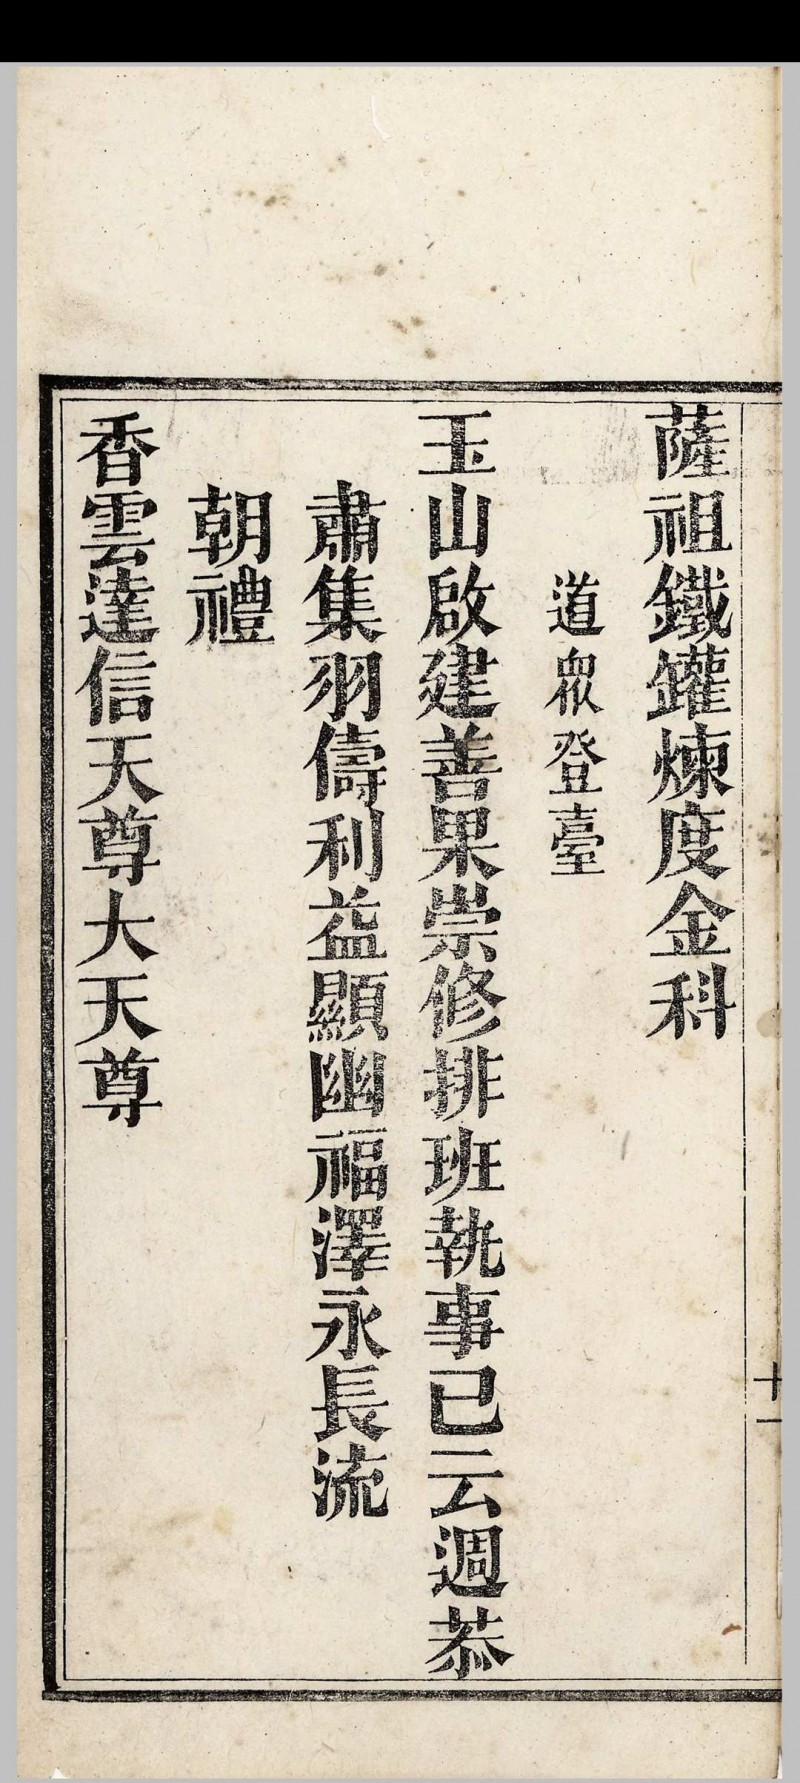 薩祖鐵罐煉度金科
道衆登臺
玉山啟建善果崇修排班執事已云週恭
肅集羽儔利益顯幽福澤永長流
朝禮
香雲達信天尊大天尊
十一